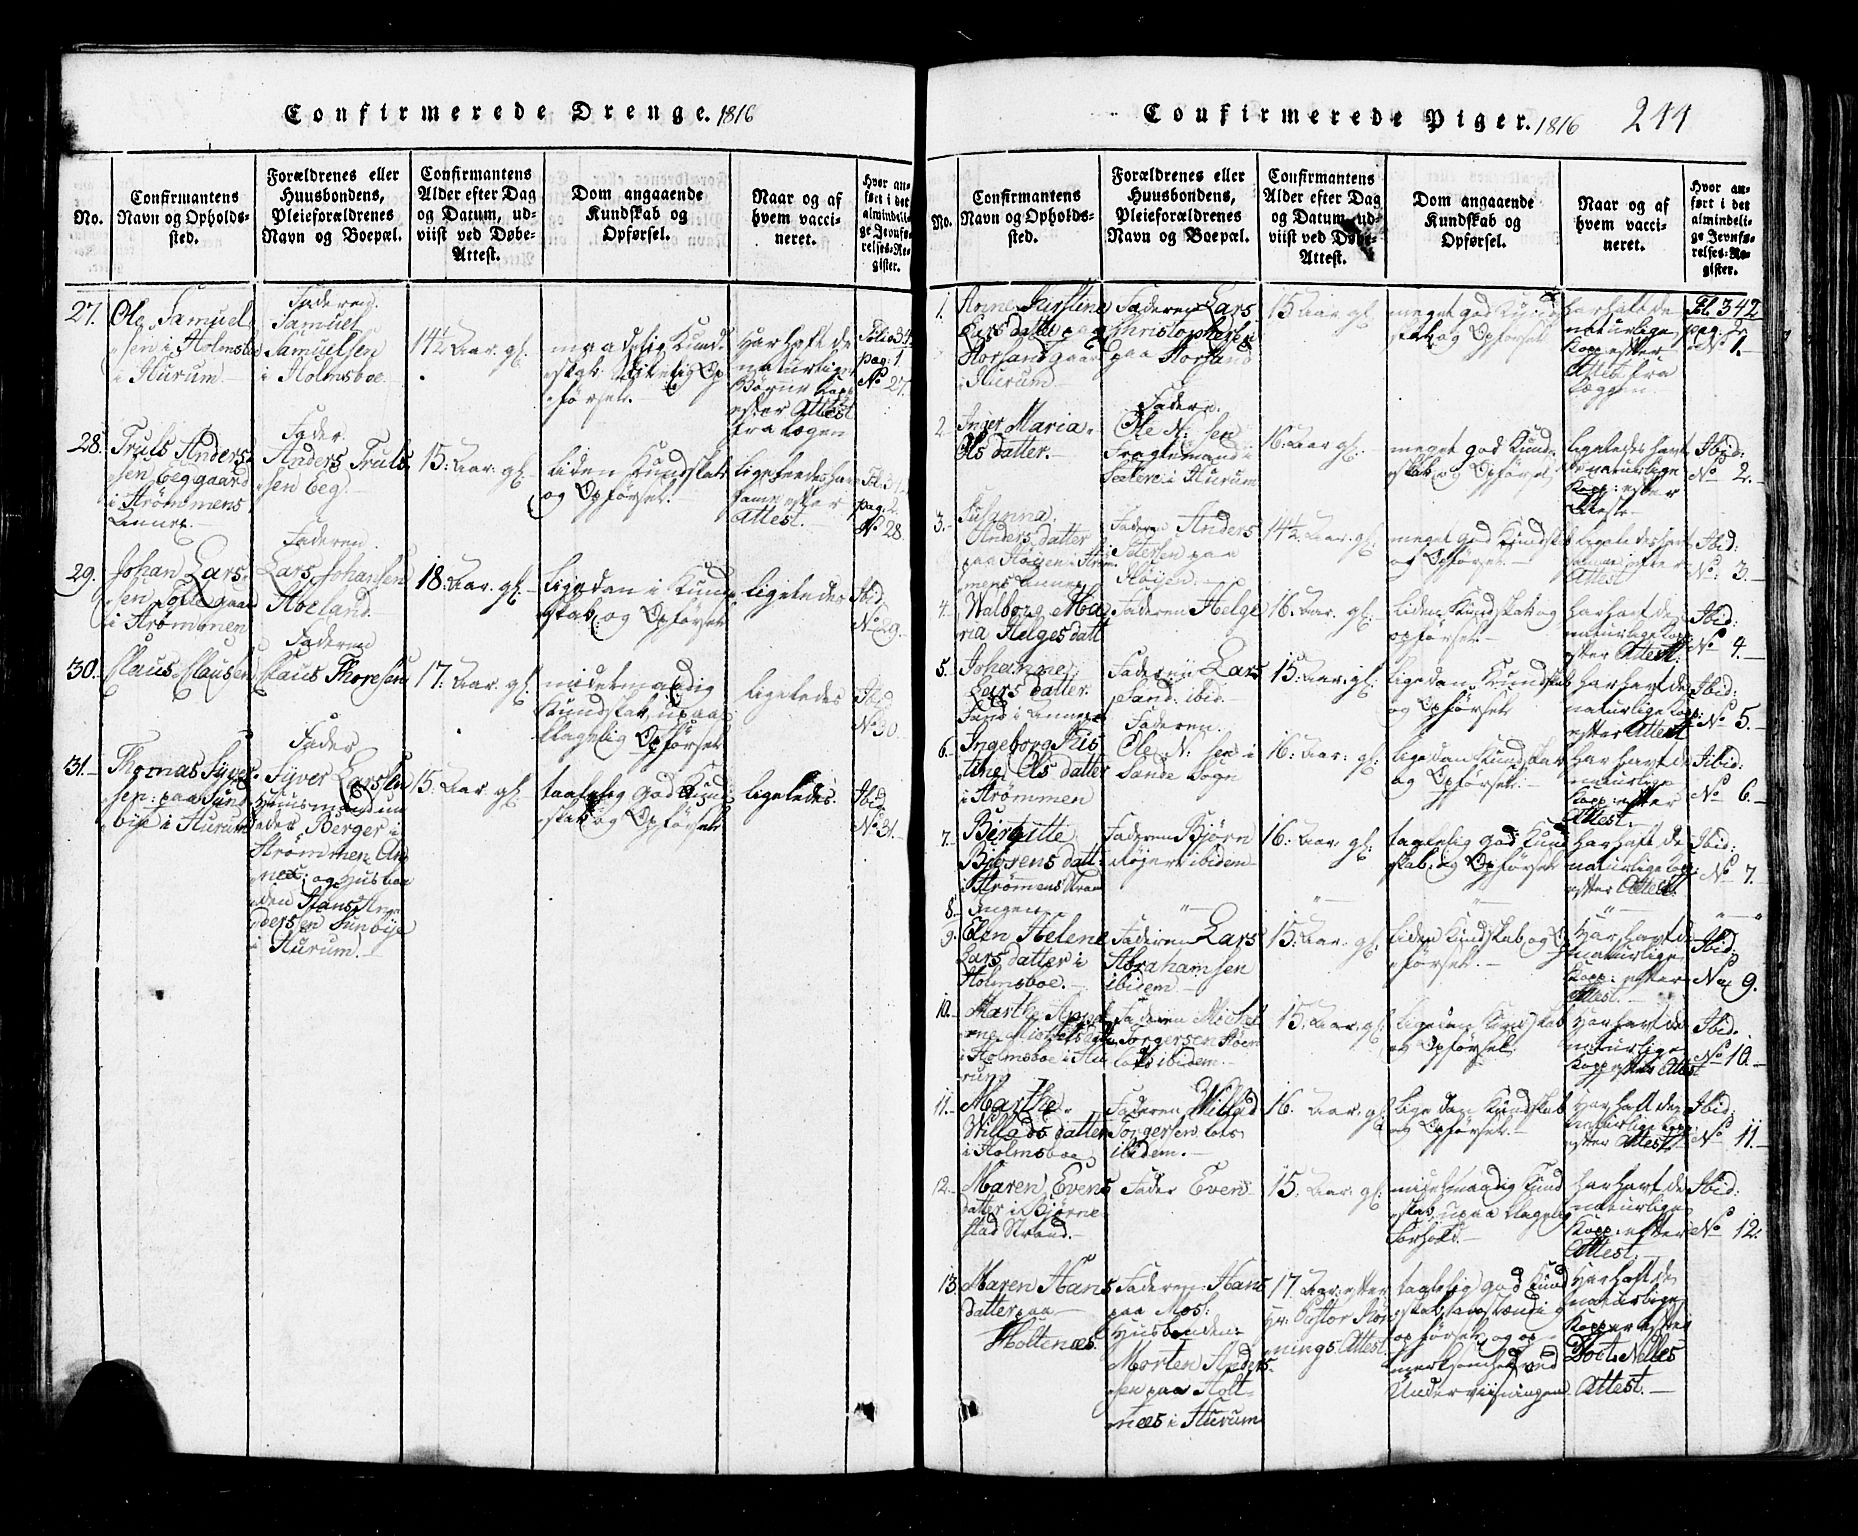 Confirmerede Drenge. 1816
No.
Confirmantens
Navn og Opholds-
sted.
Forældrenes eller
Huusbondens,
Pleieforældrenes
Navn og Boepæl.
Confirmantens
Alder efter Dag
og Datum, ud-
viist ved Døbe-
Attest.
Dom angaaende
Kundskab og
Opførsel.
Naar og af
hvem vacci-
neret.
Hvor an-
ført i det
almindeli-
ge Jevnfø-
relses-Re-
gister.
27.
Ole Samuel-
sen i Holmsbo
i Hurum
Faderen
Samuel
Samuelsen
i Holmsboe.
14½ Aar. gl.
maadelig Kund-
skab
førsel.
Har haft de
naturlige
Børne kopp
efter Attest
fra Lægen
pag: 1
No 27.
28.
Truls Anders-
sen Eeg gaard
i Strømmens
Annex.
Fader
Anders Truls-
sen Eeg.
15: Aar: gl.
Liden Kundskab
og Opførsel.
efter
Attest.
pag. 2
No 28.
29.
Johan Lars-
sen
i Strømmen
Faderen
Lars Johansen
18: Aar. gl.
Ligedan i Kund-
skab og Opførsel
ligeledes
Ibid
No 29.
30.
Claus Clausen
Faderen
Claus Thoresen
17: Aar. gl.
middelmaadig
Kundskab, upaa-
klagelig Opførsel
ligeledes
Ibid
No 30.
31.
Thomas Syver-
sen: paa Sund-
bye i Hurum
Fader
Syver Larssen
Huusmand un-
der Berger i
Strømmen An-
nex: og Husbon-
den Hans An-
dersen Sunbye
i Hurum.
15. Aar gl.
taalelig god Kund-
skab og Opførsel
ligeledes.
Ibid
No 31.
Confirmerede Piger. 1816 244
No.
Confirmantens
Navn og Opholds-
sted.
Forældrenes eller
Huusbondens,
Pleieforældrenes
Navn og Boepæl.
Confirmantens
Alder efter Dag
og Datum, ud-
viist ved Døbe-
Attest.
Dom angaaende
Kundskab og
Opførsel.
Naar og af
hvem vacci-
neret.
Hvor an-
ført i det
almindeli-
ge Jevnfø-
relses-Re-
gister.
1.
Anne Kirstine
Lars datter paa
i Hurum.
Faderen Lars
Christophersen
paa
15 Aar gl.
meget god Kund-
skab og Opførsel
har hatt de
naturlige
Kopp efter
Attest fra
Læggen
Fol. 342
pag. 2
No 1.
2
Inger Maria
Ols datter.
Faderen
Ole N: sen
i Hurum
16. Aar gl.
meget god Kund-
skab og Opførsel
ligeledes havt
de naturlige
Kopp: efter
Attest
Ibid:
No 2.
3.
Susanna
Anders datter
Faderen Anders
paa
14½ Aar. gl.
meget god Kundskab
og Opførsel
ligeledes havt
efter
Attest
Ibid:
No: 3.
4.
Walborg Ma-
ria Helges datt
Faderen Helge
16. Aar. gl.
Liden Kundskab og
opførsel
har havt de
naturlige Kopp
efter Attest
Ibid:
No 4.
5.
Johanne
Lars datter
Sand i Annex
Faderen Lars
Sand. ibid.
15: Aar: gl:
Ligedan Kundskab
og Opførsel
har havt de
naturlige Kopp
efter Attest
Ibid:
No 5.
6.
Ingeborg Kis-
tine Ols datter
i Strømmen
Faderen
Ole N: sen i
Sande Sogn
16: Aar: gl:
ligedan Kundskab
og Opførsel
har havt de
naturlige
Kopp: efter
Attest
Ibid:
No 6.
7.
Birgitte
Bjørens datt:
i Strømmens
Faderen Bjørn
ibidem
16. Aar: gl:
taalelig god Kund-
skab, og Opførsel
har haft de
naturlige Kopp
efter Attest.
Ibid:
No 7.
8.
Ingen
"
"
"
"
"
9.
Elen Helene
Lars datter i
Holmsboe.
Faderen Lars
Abrahamsen
ibidem
15: Aar: gl:
Liden Kundskab, og Op-
førsel.
Har havt de
naturlige
Kopp: efter
Attest.
Ibid:
No 9.
10.
Marthe
i Holmsboe i Hu-
rum
Faderen Michel
Torgersen
Lots ibidem.
15. Aar. gl:
Ligedan Kundskab
og Opførsel.
Har havt de
naturlige
Kopp efter Attest
Ibid.
No 10.
11.
Marthe
Willads datter
i Holmsboe
Faderen Willad
Torgersen Lots
ibidem.
16. Aar. gl:
Lige dan Kundskab
og Opførsel.
Har haft de
naturlige Kopp:
efter Attest
Ibid:
No 11.
12.
Maren Evens
datter i Bjørne-
stad Strand.
Fader Even
15: Aar: gl:
midelmaadig Kund-
skab, upaa klagelig
Forhold.
har havt de
naturlige
Kopp: efter
Attest
Ibid:
No 12.
13.
Maren Hans
datter paa
Holtenæs.
Faderen Hans
paa Mos:
Husbonden:
Morten Anders-
sen paa Holt-
næs i Hurum
17. Aar efter
Hr. Pastor
nings. Attest.
taalelig god Kund-
skab, anstændig
opførsel, og op-
merksomhed ved
Underviisningen
Har haft de
naturlige
Kopper efter
Doct. Nelles
Attest.